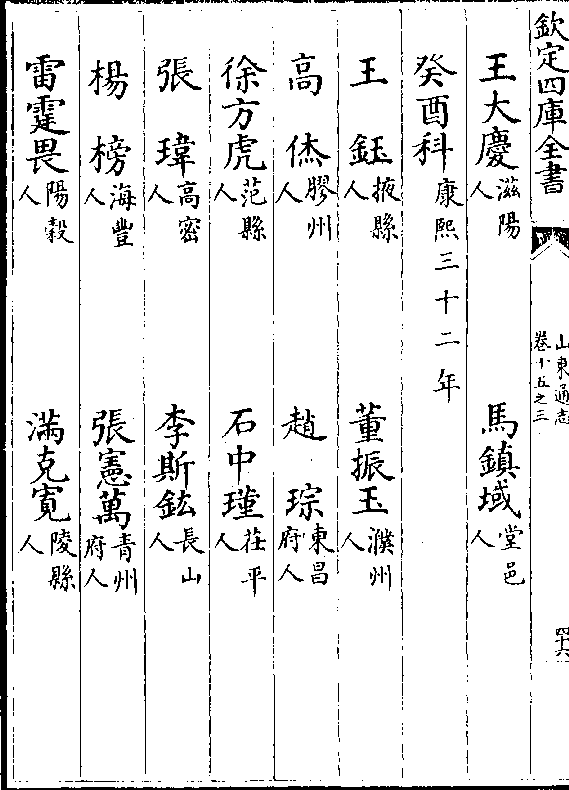 欽定四庫全書
山東通志
卷十五之三
四十六
王大慶滋陽人 馬鎮域堂邑人
癸酉科康熙三十二年
王鈺掖縣人 董振玉濮州人
高㶷膠州人 趙琮東昌府人
徐方虎范縣人 石中瑾茌平人
張瑋高密人 李斯鉉長山人
楊榜海豐人 張憲萬青州府人
雷霆畏陽穀人 滿克寛陵縣人